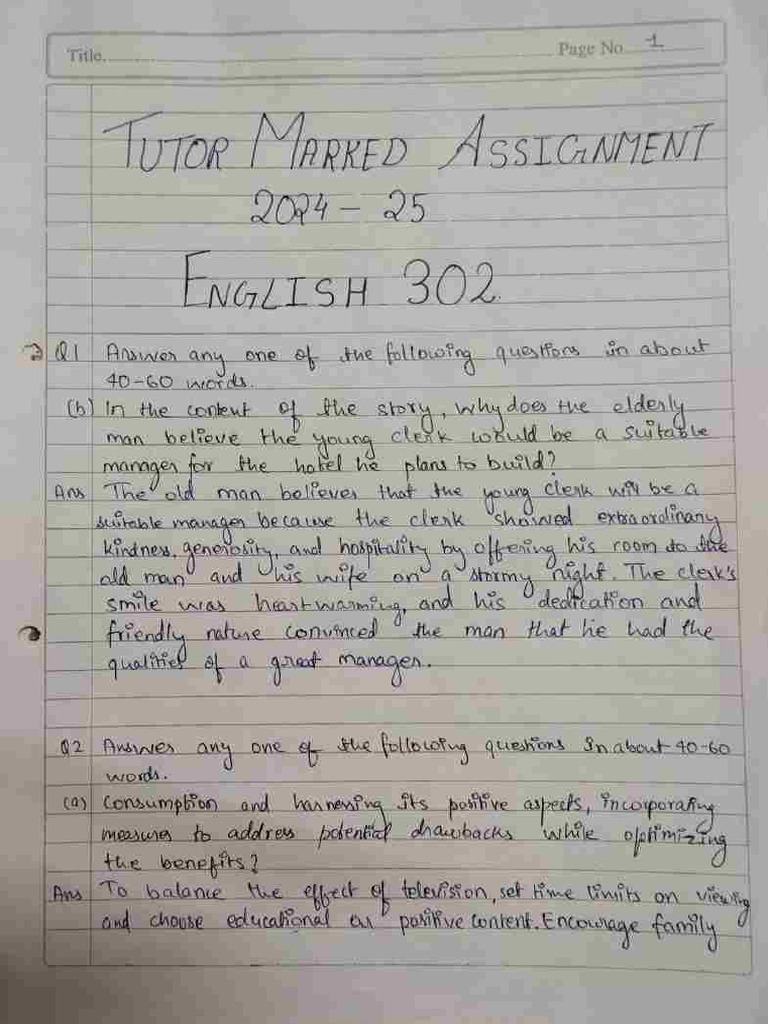 Title.
Page No. 1
TUTOR MARKED ASSIGNMENT
2024 - 25
ENGLISH 302
Q1 Answer any one of the following questions in about
40-60 words.
(b) In the content of the story, why does the elderly
man believe the young clerk would be a suitable
manager for the hotel he plans to build?
Ans The old man believes that the young clerk will be a
suitable manager because the clerk showed extraordinary
kindness, generosity, and hospitality by offering his room to the
old man and his wife on a stormy night. The clerk's
smile was heartwarming, and his dedication and
friendly nature convinced the man that he had the
qualities of a great manager.
Q2 Answer any one of the following questions in about 40-60
words.
(a) Consumption and harnessing its positive aspects, incorporating
measures to address potential drawbacks while optimizing
the benefits?
Ans To balance the effect of television, set time limits on viewing
and choose educational or positive content. Encourage family